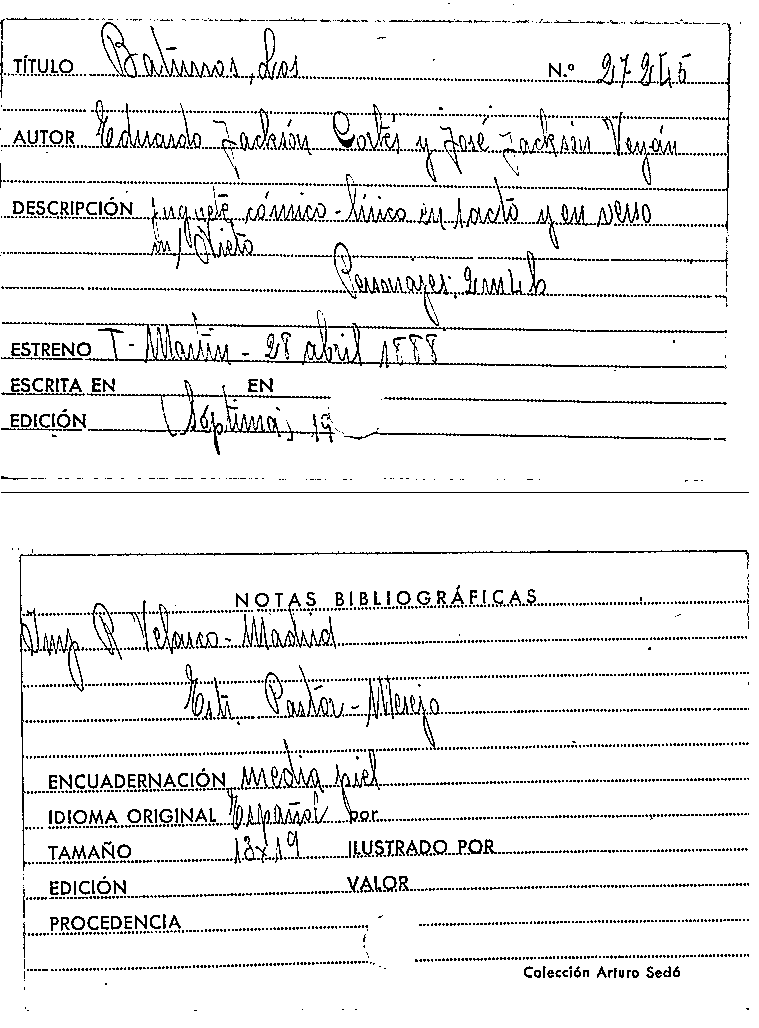 TÍTULO Baturros, Los N.º 27245
AUTOR Eduardo Jackson Cortés y José Jackson Veyán
DESCRIPCIÓN juguete cómico-lírico en 1 acto y en verso
m/ Nieto
Personajes, 2 m 4 h
ESTRENO T- Martín - 28 abril 1888
ESCRITA EN EN
EDICIÓN Séptima, 19
NOTAS BIBLIOGRÁFICAS
Imp R Velasco - Madrid
Estr. Pastor - Mesejo
ENCUADERNACIÓN media piel
IDIOMA ORIGINAL Español por
TAMAÑO 13x19 ILUSTRADO POR
EDICIÓN VALOR
PROCEDENCIA
Colección Arturo Sedó